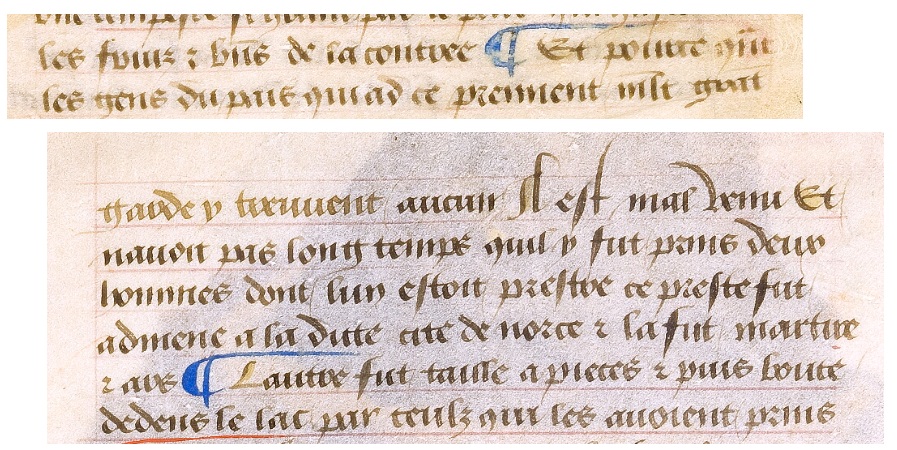 les fours ⁊ bns de la contree ¶ Et pource qnt
les gens du pais qui ad ce prennent mlt grāt
garde y treuuent aucun Il est mal venu Et
nauoit pas long temps quil y fut prins deux
hommes dont lun estoit prestre ce prestre fut
admene a la ditte cite de norce ⁊ la fut martire
⁊ ars ¶ Lautre fut taille a pieces ⁊ puis boute
dedens le lac par ceulz qui les auoient prins